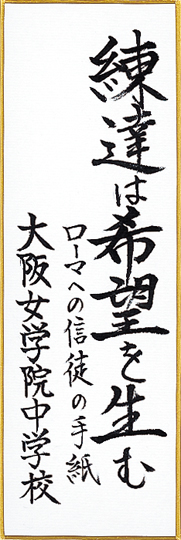 練達は希望を生む
ローマへの信徒の手紙
大阪女学院中学校